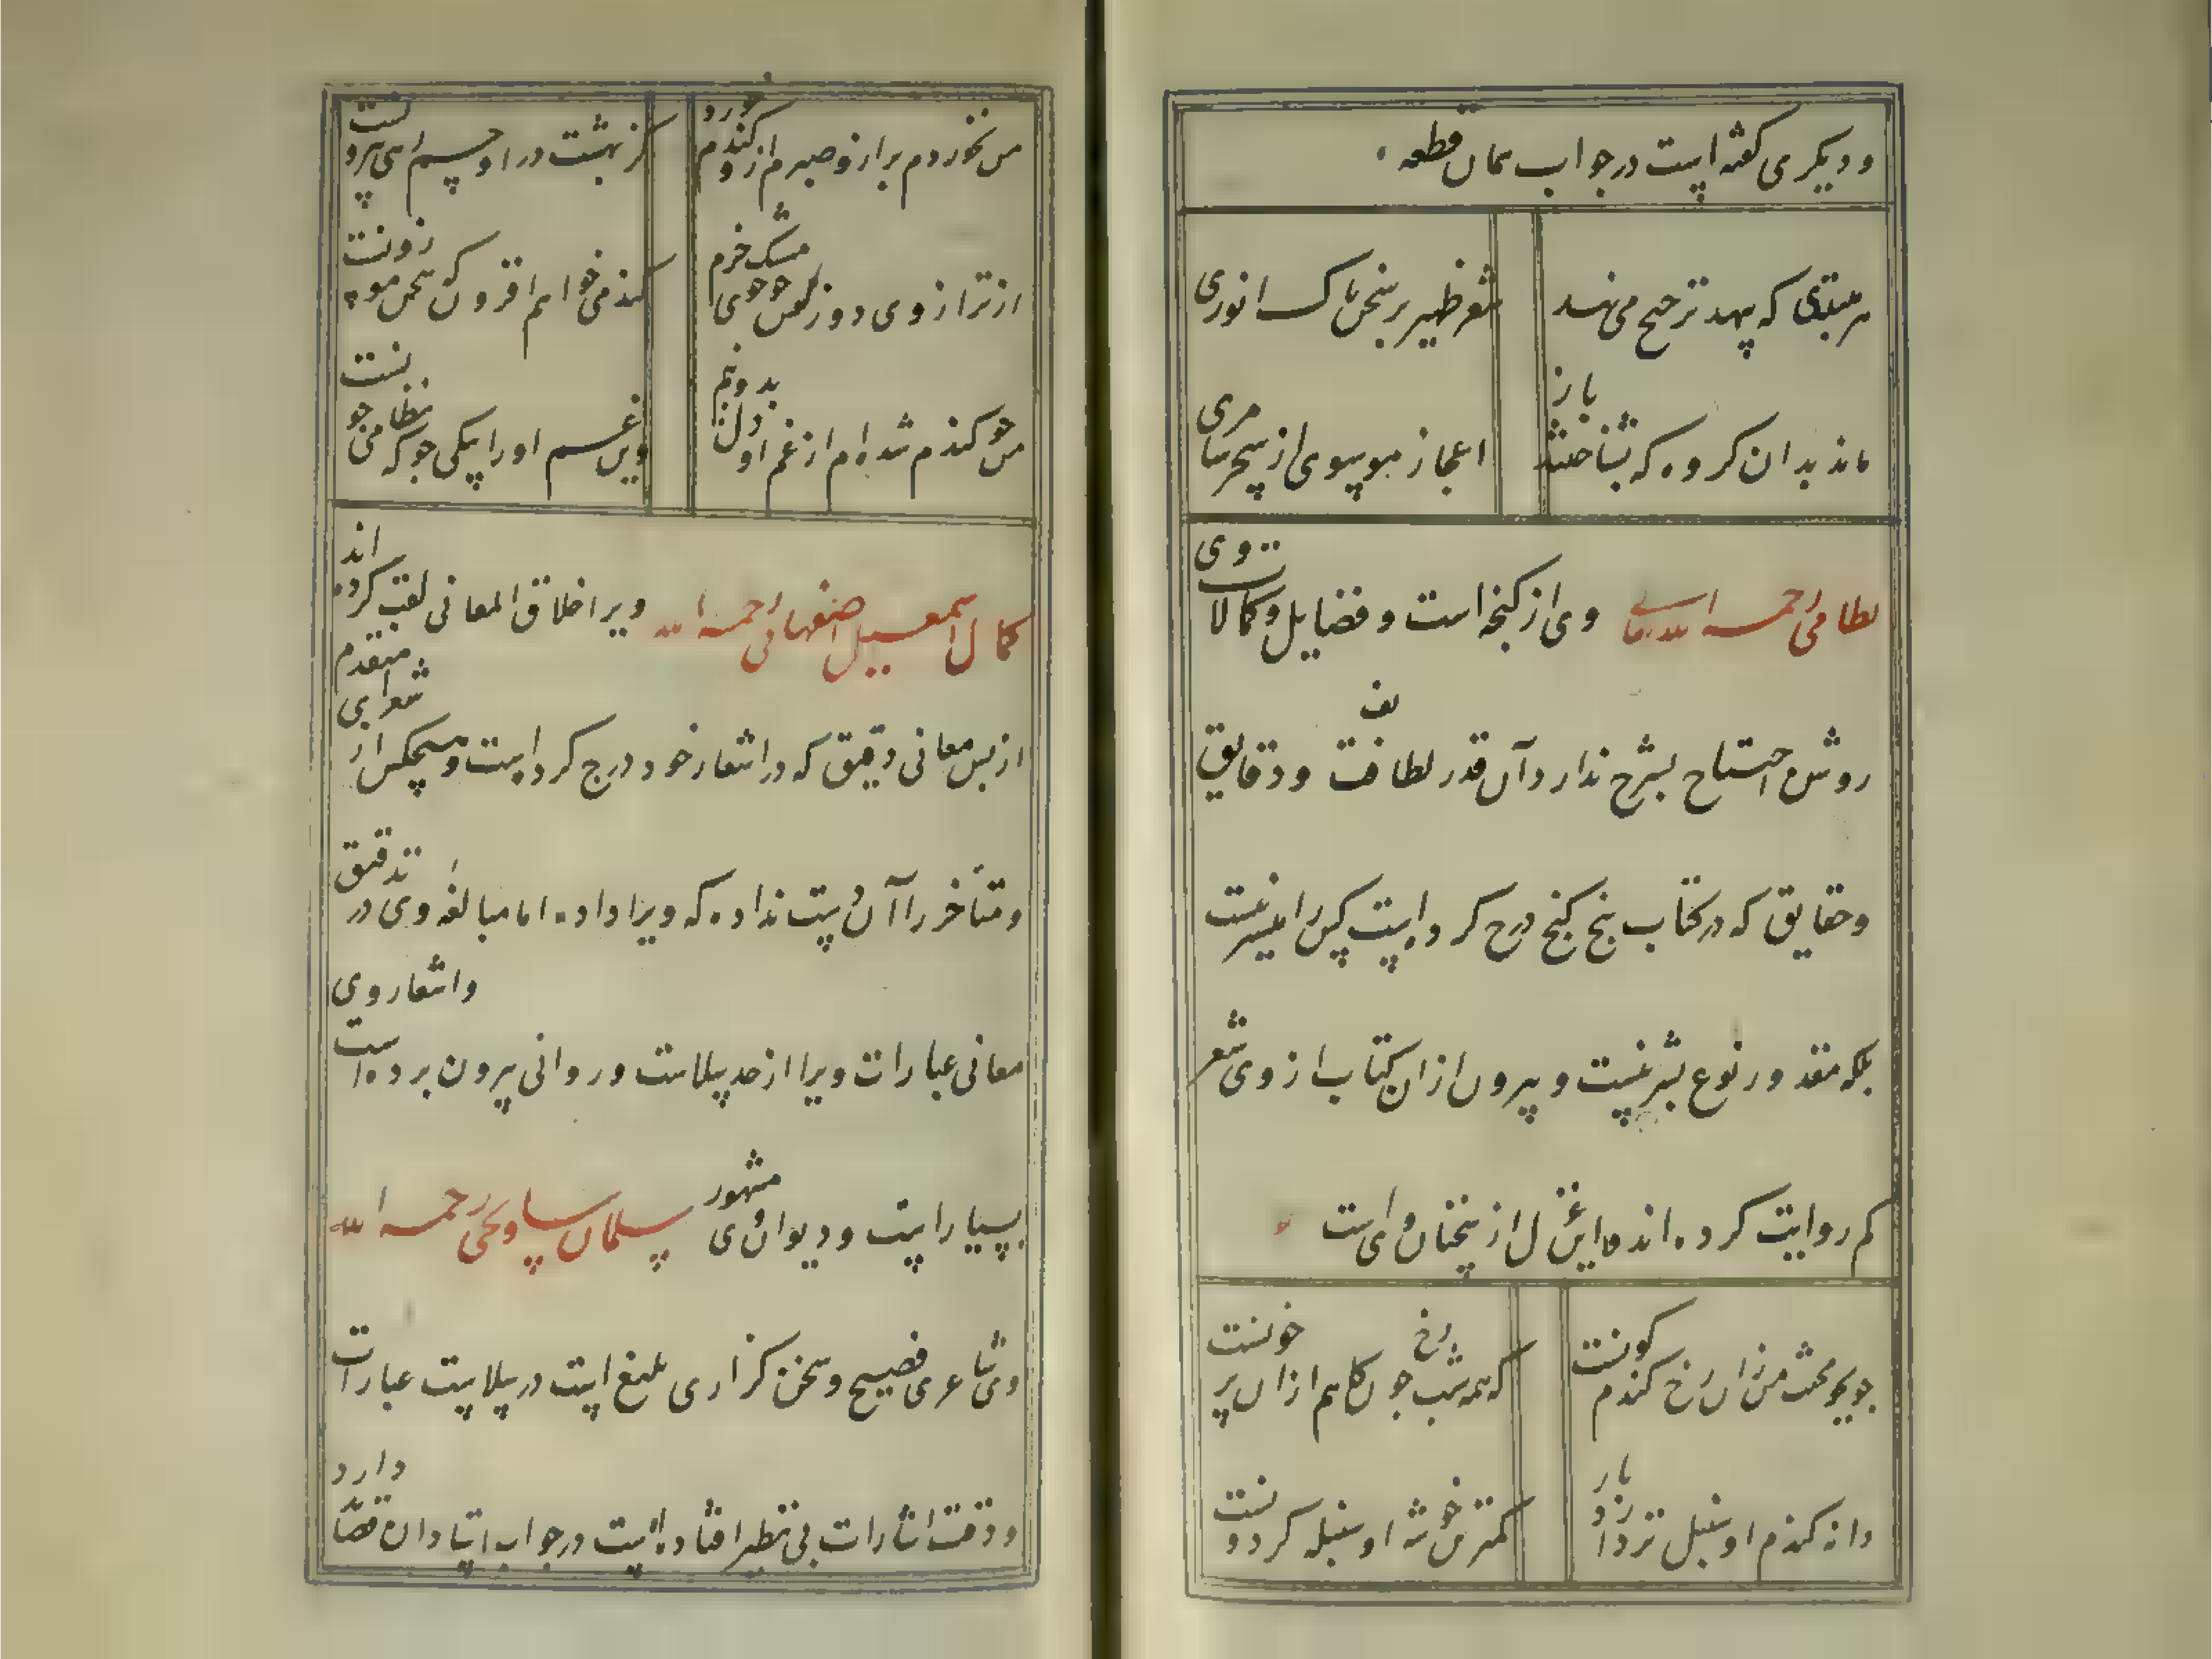 و دیکری کفته است در جواب همان قطعه
هر مبتدی که بیهده ترجیح می نهد
شعر ظهیر بر سخن پاک انوری
ماند بدان کروه که نشناختند باز
اعجاز موسوی از سحر سامری
نظامی رحمه الله تعالی وی از کنجه است و فضایل و کمالات وی
روشن احتیاج بشرح ندارد آن قدر لطافت و دقایق
و حقایق که در کتاب پنج کنج درج کرده است کس را میسر نیست
بلکه مقدور نوع بشر نیست و بیرون ازان کتاب از وی شعر
کم روایت کرده اند و این غزل از سخنان وی است
جو بجو محنت من زان رخ کندم کونست
که همه شب جو کاهم ازان پر خونست
دانه کندم او سنبل تر دارد بار
کمترین خوشه او سنبله کردونست
من نخوردم بر ازو صبرم ازو کندم خورد
کز بهشت در او جسم اهی بیرونست
از ترازوی دو زلفش جوی مشک خرم
کندمی خواهم افزون که سخن موزونست
من جو کندم شده ام از غم او دل بدو نیم
وین غم او را بیکی جو که نظامی جونست
کمال اسمعیل اصفهانی رحمه الله ویرا خلاق المعانی لقب کرده اند
از بس معانی دقیق که در اشعار خود درج کرده است و هیچکس از شعرای متقدم
و متأخر را آن دست نداده که ویرا داده اما مبالغه وی در تدقیق
معانی عبارات ویرا از حد سلاست و روانی بیرون برده است و اشعار وی
بسیار است و دیوان وی مشهور سلمان ساوجی رحمه الله
وی شاعری فصیح و سخن کزاری بلیغ است در سلاست عبارات
و دقت اشارات بی نظیر افتاده است در جواب استادان قصاید دارد